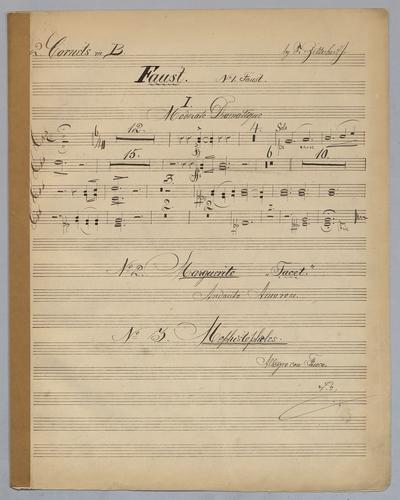 2 Cornets in B.
by F.
Faust. No 1. Faust.
I.
Moderato Dramatique
12. 4. Solo
15. 6 10.
3.
2
No 2. Marguerite "Tacet."
Andante Amoroso.
No 3. Mephistopheles.
Allegro con Fuoco.